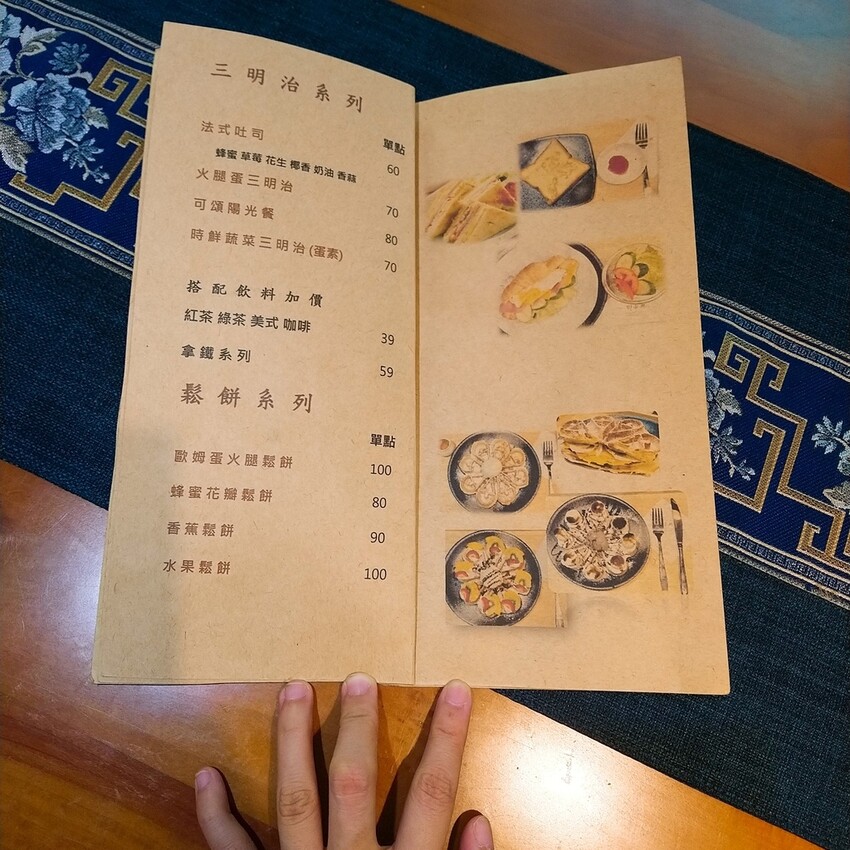 三明治系列
單點
法式吐司 60
蜂蜜 草莓 花生 椰香 奶油 香蒜
火腿蛋三明治 70
可頌陽光餐 80
時鮮蔬菜三明治(蛋素) 70
搭配飲料加價
紅茶 綠茶 美式 咖啡 39
拿鐵系列 59
鬆餅系列
單點
歐姆蛋火腿鬆餅 100
蜂蜜花瓣鬆餅 80
香蕉鬆餅 90
水果鬆餅 100